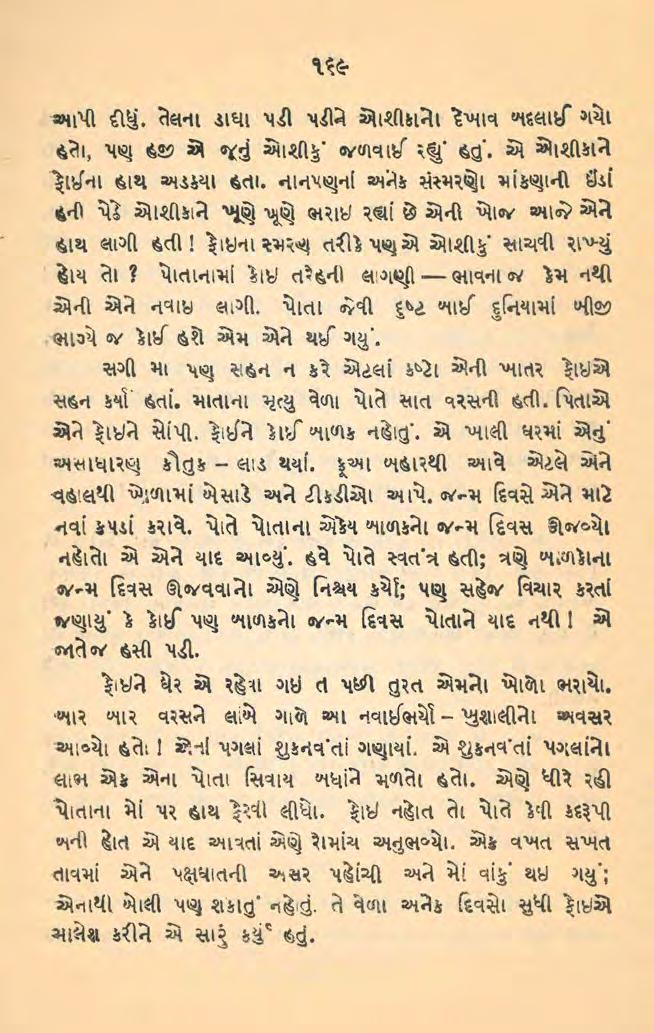 ૧૬૯
આપી દીધું. તેલના ડાઘા પડી પડીને ઓશીકાનો દેખાવ બદલાઈ ગયો
હતો, પણ હજી એ જૂનું ઓશીકું જળવાઈ રહ્યું હતું. એ ઓશીકાને
ફોઈના હાથ અડક્યા હતા. નાનપણનાં અનેક સંસ્મરણો માંકણાની ઈંડાં
હની પેઠે ઓશીકાને ખૂણે ખૂણે ભરાઇ રહ્યાં છે એની ખોજ આજે એને
હાથ લાગી હતી ! ફોઇના સ્મરણ તરીકે પણ એ ઓશીકું સાચવી રાખ્યું
હોય તો ? પોતાનામાં કોઇ તરેહની લાગણી — ભાવના જ કેમ નથી
એની એને નવાઇ લાગી. પોતા જેવી દુષ્ટ બાઈ દુનિયામાં બીજી
ભાગ્યે જ કોઈ હશે એમ એને થઈ ગયું.
સગી મા પણ સહન ન કરે એટલાં કષ્ટો એની ખાતર ફોઇએ
સહન કર્યાં હતાં. માતાના મૃત્યુ વેળા પોતે સાત વરસની હતી. પિતાએ
એને ફોઇને સોંપી. ફોઈને કોઈ બાળક નહોતું. એ ખાલી ઘરમાં એનું
અસાધારણ કૌતુક – લાડ થયાં. ફૂઆ બહારથી આવે એટલે એને
વહાલથી ખોળામાં બેસાડે અને ટીકડીઓ આપે. જન્મ દિવસે એને માટે
નવાં કપડાં કરાવે. પોતે પોતાના એકેય બાળકનો જન્મ દિવસ ઊજવ્યો
નહોતો એ એને યાદ આવ્યું. હવે પોતે સ્વતંત્ર હતી; ત્રણે બાળકોના
જન્મ દિવસ ઊજવવાનો એણે નિશ્ચય કર્યો; પણ સહેજ વિચાર કરતાં
જણાયું કે કોઈ પણ બાળકનો જન્મ દિવસ પોતાને યાદ નથી ! એ
જાતેજ હસી પડી.
ફોઇને ઘેર એ રહેવા ગઇ ત પછી તુરત એમનો ખોળો ભરાયો.
બાર બાર વરસને લાંબે ગાળે આ નવાઈભર્યો – ખુશાલીનો અવસર
આવ્યો હતો ! એનાં પગલાં શુકનવંતાં ગણાયાં. એ શુકનવંતાં પગલાંનો
લાભ એક એના પોતા સિવાય બધાંને મળતો હતો. એણે ધીરે રહી
પોતાના મોં પર હાથ ફેરવી લીધો. ફોઇ નહોત તો પોતે કેવી કદરૂપી
બની હોત એ યાદ આવતાં એણે રોમાંચ અનુભવ્યો. એક વખત સખત
તાવમાં એને પક્ષઘાતની અસર પહોંચી અને મોં વાંકું થઇ ગયું;
એનાથી બોલી પણ શકાતું નહોતું. તે વેળા અનેક દિવસો સુધી ફોઇએ
માલેશ કરીને એ સારું કર્યું હતું.